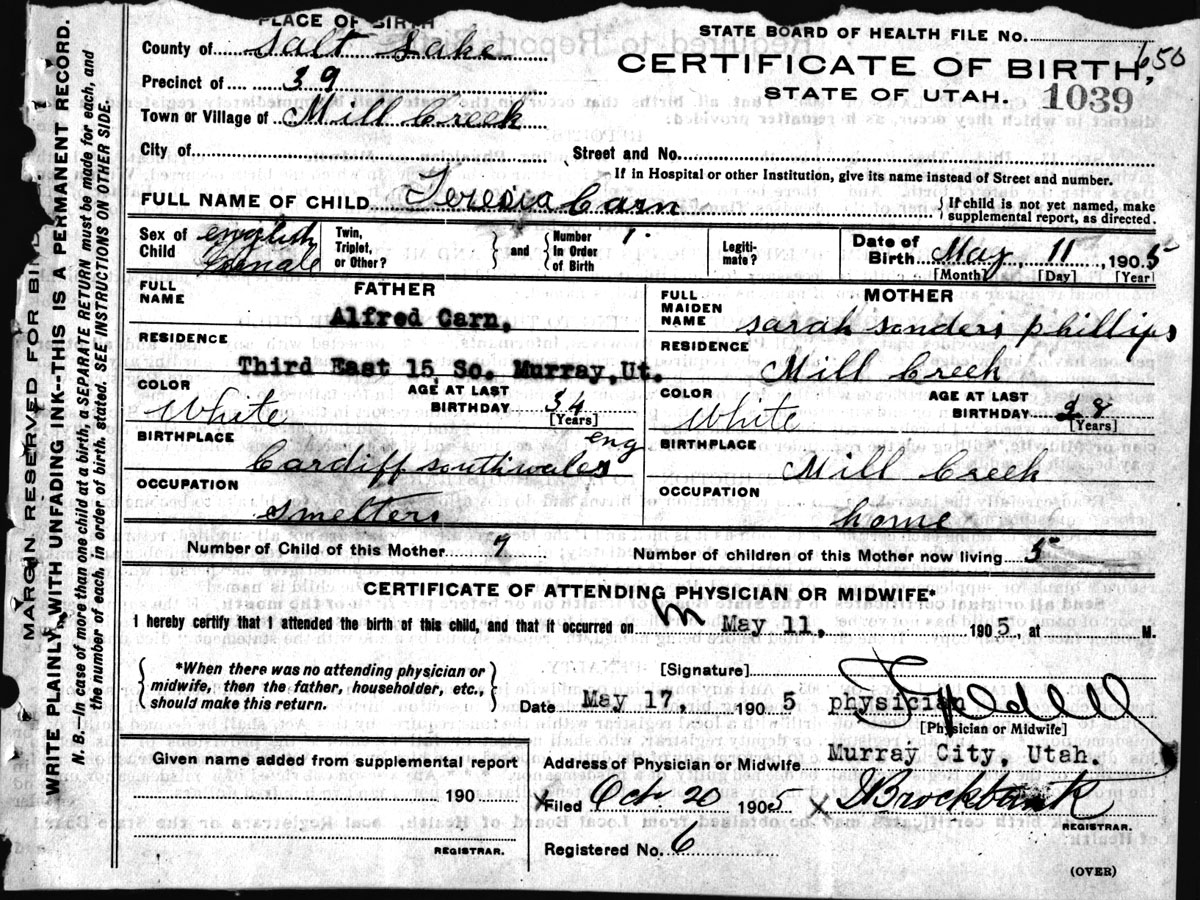 PLACE OF BIRTH
County of Salt Lake
Precinct of 39
Town or Village of Mill Creek
City of
STATE BOARD OF HEALTH FILE No. 650
CERTIFICATE OF BIRTH,
STATE OF UTAH. 1039
Street and No.
If in Hospital or other Institution, give its name instead of Street and number.
FULL NAME OF CHILD Teresia Carn
If child is not yet named, make supplemental report, as directed.
Sex of Child english female
Twin, Triplet, or Other?
and
Number in Order of Birth 1.
Legiti-mate?
Date of Birth May 11, 1905
[Month] [Day] [Year]
FATHER
FULL NAME
Alfred Carn.
RESIDENCE
Third East 15 So. Murray, Ut.
COLOR White
AGE AT LAST BIRTHDAY 34
[Years]
BIRTHPLACE
Cardiff southwales eng
OCCUPATION
smelters
MOTHER
FULL MAIDEN NAME sarah sanders phillips
RESIDENCE
Mill Creek
COLOR White
AGE AT LAST BIRTHDAY 28
[Years]
BIRTHPLACE
Mill Creek
OCCUPATION
home
Number of Child of this Mother 7
Number of children of this Mother now living 5
CERTIFICATE OF ATTENDING PHYSICIAN OR MIDWIFE*
I hereby certify that I attended the birth of this child, and that it occurred on May 11, 1905, at M.
m
*When there was no attending physician or
midwife, then the father, householder, etc.,
should make this return.
[Signature]
Date May 17, 1905 physician
[Physician or Midwife]
Address of Physician or Midwife Murray City, Utah.
Given name added from supplemental report
190
REGISTRAR.
X Filed Oct 20 1905 X Brockbank
REGISTRAR.
Registered No. 6
(OVER)
MARGIN RESERVED FOR
WRITE PLAINLY, WITH UNFADING INK--THIS IS A PERMANENT RECORD.
N. B.—In case of more than one child at a birth, a SEPARATE RETURN must be made for each, and
the number of each, in order of birth, stated. SEE INSTRUCTIONS ON OTHER SIDE.